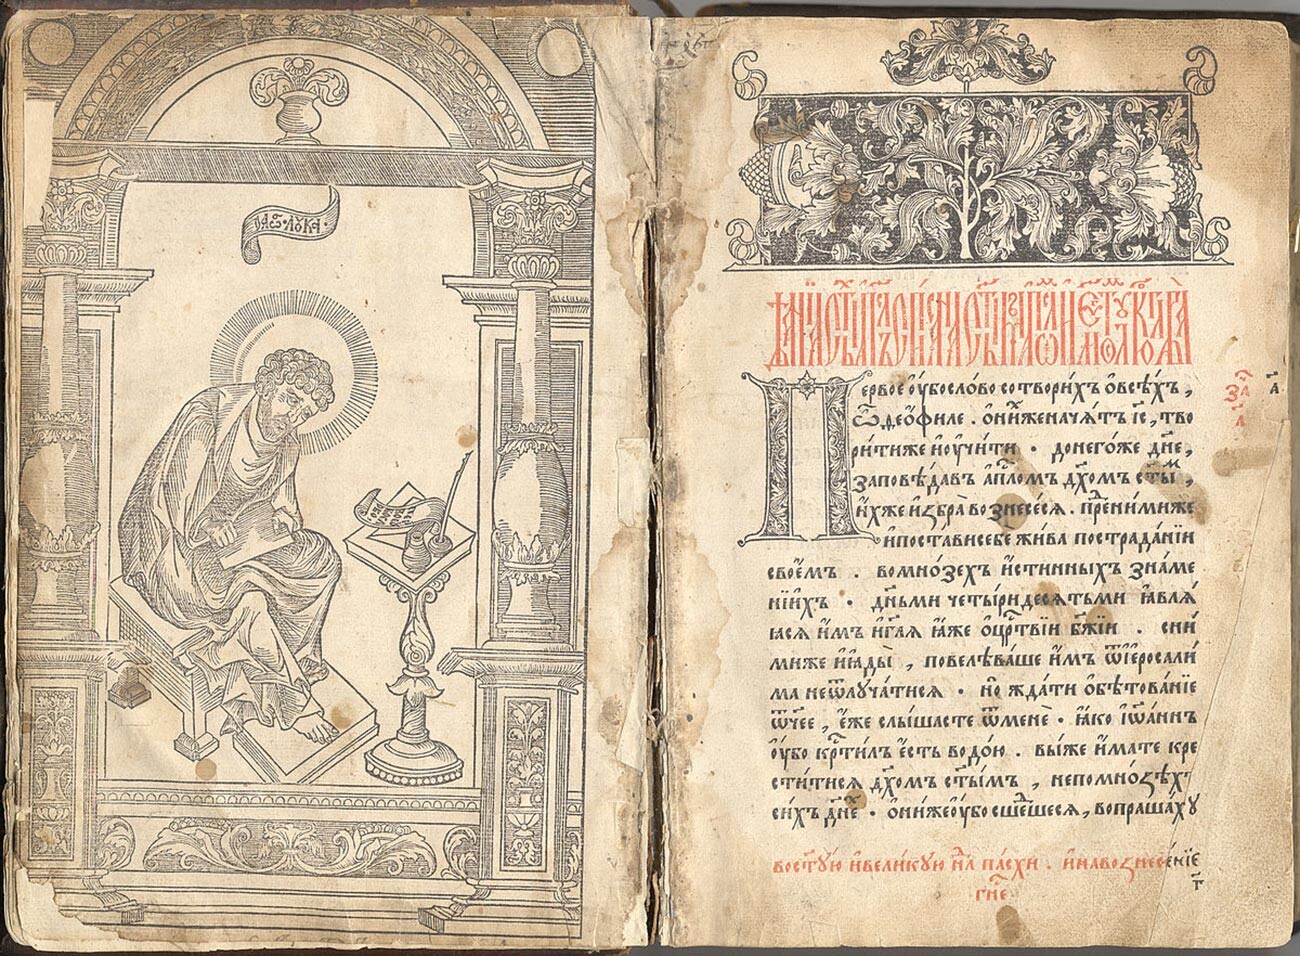 лꙋка
Первое оубо слово сотворихъ ѡвсѣхъ,
ѽ деѡфиле. онихже начатъ і҃с, тво
ритиже и оучити · донегоже дн҃е,
заповѣдавъ ап҃лом дх҃ом ст҃ы,
ихже избра вознесеся. пренимиже
и постави себе жива по страданіи
своемъ. во мнозехъ истинныхъ знаме
ніихъ · дн҃ьми четыридесятьми ꙗвлѧ
ꙗсѧ имъ и гл҃ѧ ꙗже о цр҃твіи бж҃іи. сни
миже и ꙗды, повелѣваше имъ ѿ іеросали
ма не ѿлучатися · но ждати обѣтованіе
ѿчее, еже слышасте ѿ мене · ꙗко іѡаннъ
оубо кр҃тилъ есть водою. выже имате кре
ститися дх҃омъ ст҃ымъ, не по мнозѣхъ
сихъ дн҃е · они же оубо сшешеся, вопрашахꙋ
во ст҃ꙋю и великꙋю нл҃ пасхи. и на вознесеніе
гн҃е